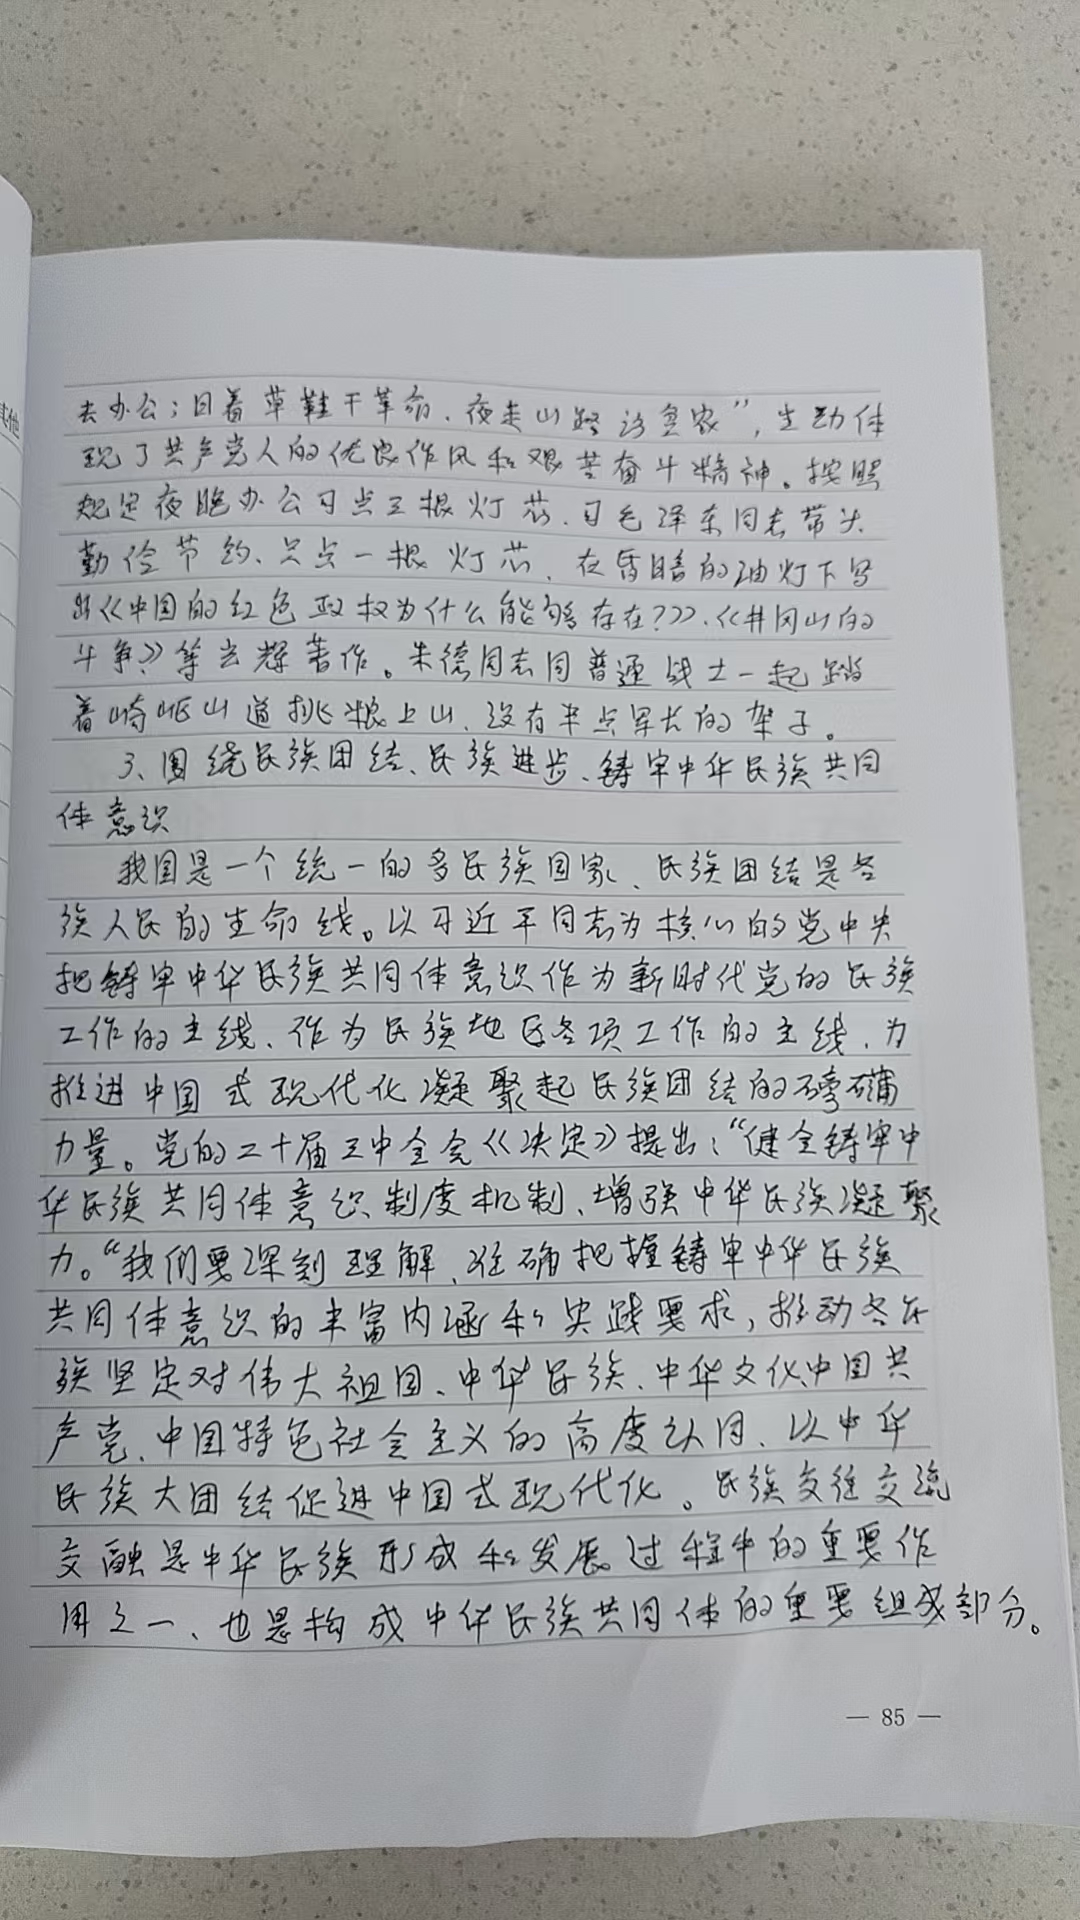 其他
去办公；日着草鞋干革命、夜走山路访贫农”，生动体
现了共产党人的优良作风和艰苦奋斗精神。按照
规定夜晚办公可点三根灯芯、可毛泽东同志带头
勤俭节约、只点一根灯芯、在昏暗的油灯下写
出《中国的红色政权为什么能够存在？》、《井冈山的
斗争》等光辉著作。朱德同志同普通战士一起踏
着崎岖山道挑粮上山、没有半点军长的架子。
3、围绕民族团结、民族进步、铸牢中华民族共同
体意识
我国是一个统一的多民族国家、民族团结是各
族人民的生命线。以习近平同志为核心的党中央
把铸牢中华民族共同体意识作为新时代党的民族
工作的主线、作为民族地区各项工作的主线、为
推进中国式现代化凝聚起民族团结的磅礴
力量。党的二十届三中全会《决定》提出：“健全铸牢中
华民族共同体意识制度机制、增强中华民族凝聚
力。“我们要深刻理解、准确把握铸牢中华民族
共同体意识的丰富内涵和实践要求，推动各民
族坚定对伟大祖国、中华民族、中华文化、中国共
产党、中国特色社会主义的高度认同、以中华
民族大团结促进中国式现代化。民族交往交流
交融是中华民族形成和发展过程中的重要作
用之一、也是构成中华民族共同体的重要组成部分。
— 85 —